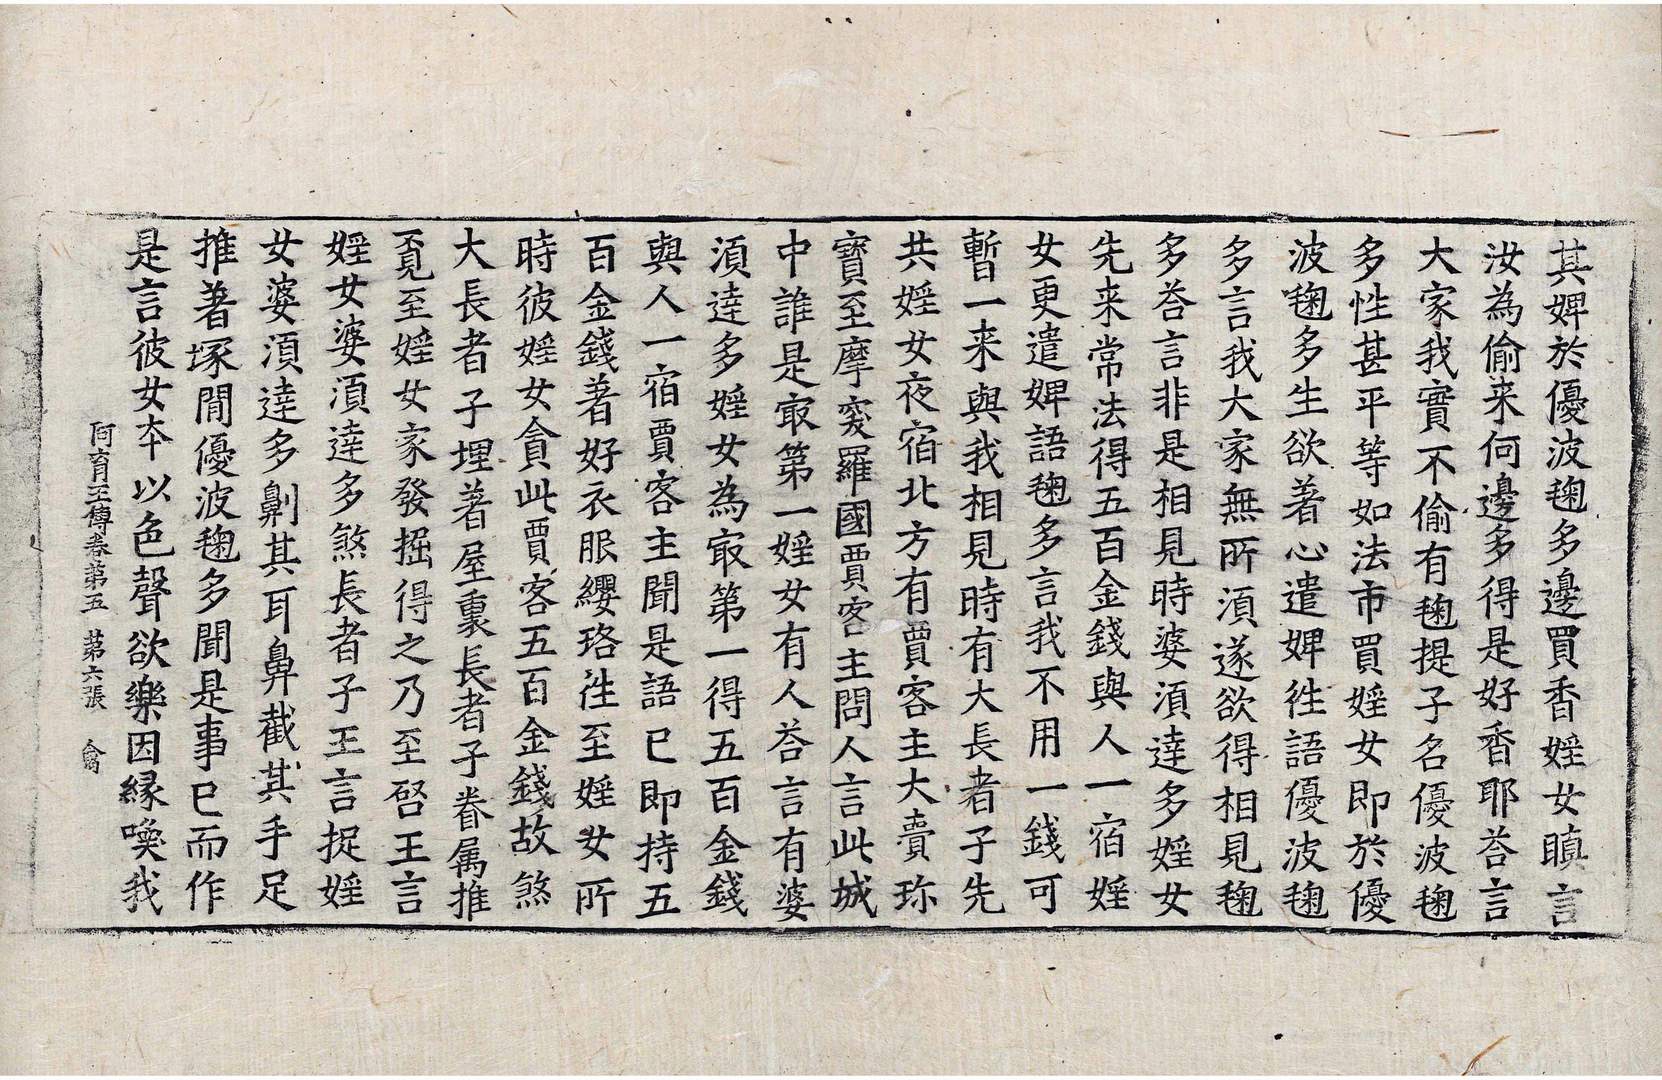 其婢於優波毱多邊買香婬女瞋言
汝為偷来何邊多得是好香耶荅言
大家我實不偷有毱提子名優波毱
多性甚平等如法市買婬女即於優
波毱多生欲著心遣婢徃語優波毱
多言我大家無所湏遂欲得相見毱
多荅言非是相見時婆湏達多婬女
先来常法得五百金錢與人一宿婬
女更遣婢語毱多言我不用一錢可
暫一来與我相見時有大長者子先
共婬女夜宿北方有賈客主大賣珎
寶至摩窔羅國賈客主問人言此城
中誰是㝡第一婬女有人荅言有婆
湏達多婬女為㝡第一得五百金錢
與人一宿賈客主聞是語已即持五
百金錢著好衣服纓珞徃至婬女所
時彼婬女貪此賈客五百金錢故煞
大長者子埋著屋裏長者子眷属推
覔至婬女家發掘得之乃至啓王言
婬女婆湏達多煞長者子王言捉婬
女婆湏達多劓其耳鼻截其手足
推著塚間優波毱多聞是事已而作
是言彼女本以色聲欲樂因緣喚我
阿育王傳卷第五　第六張　禽